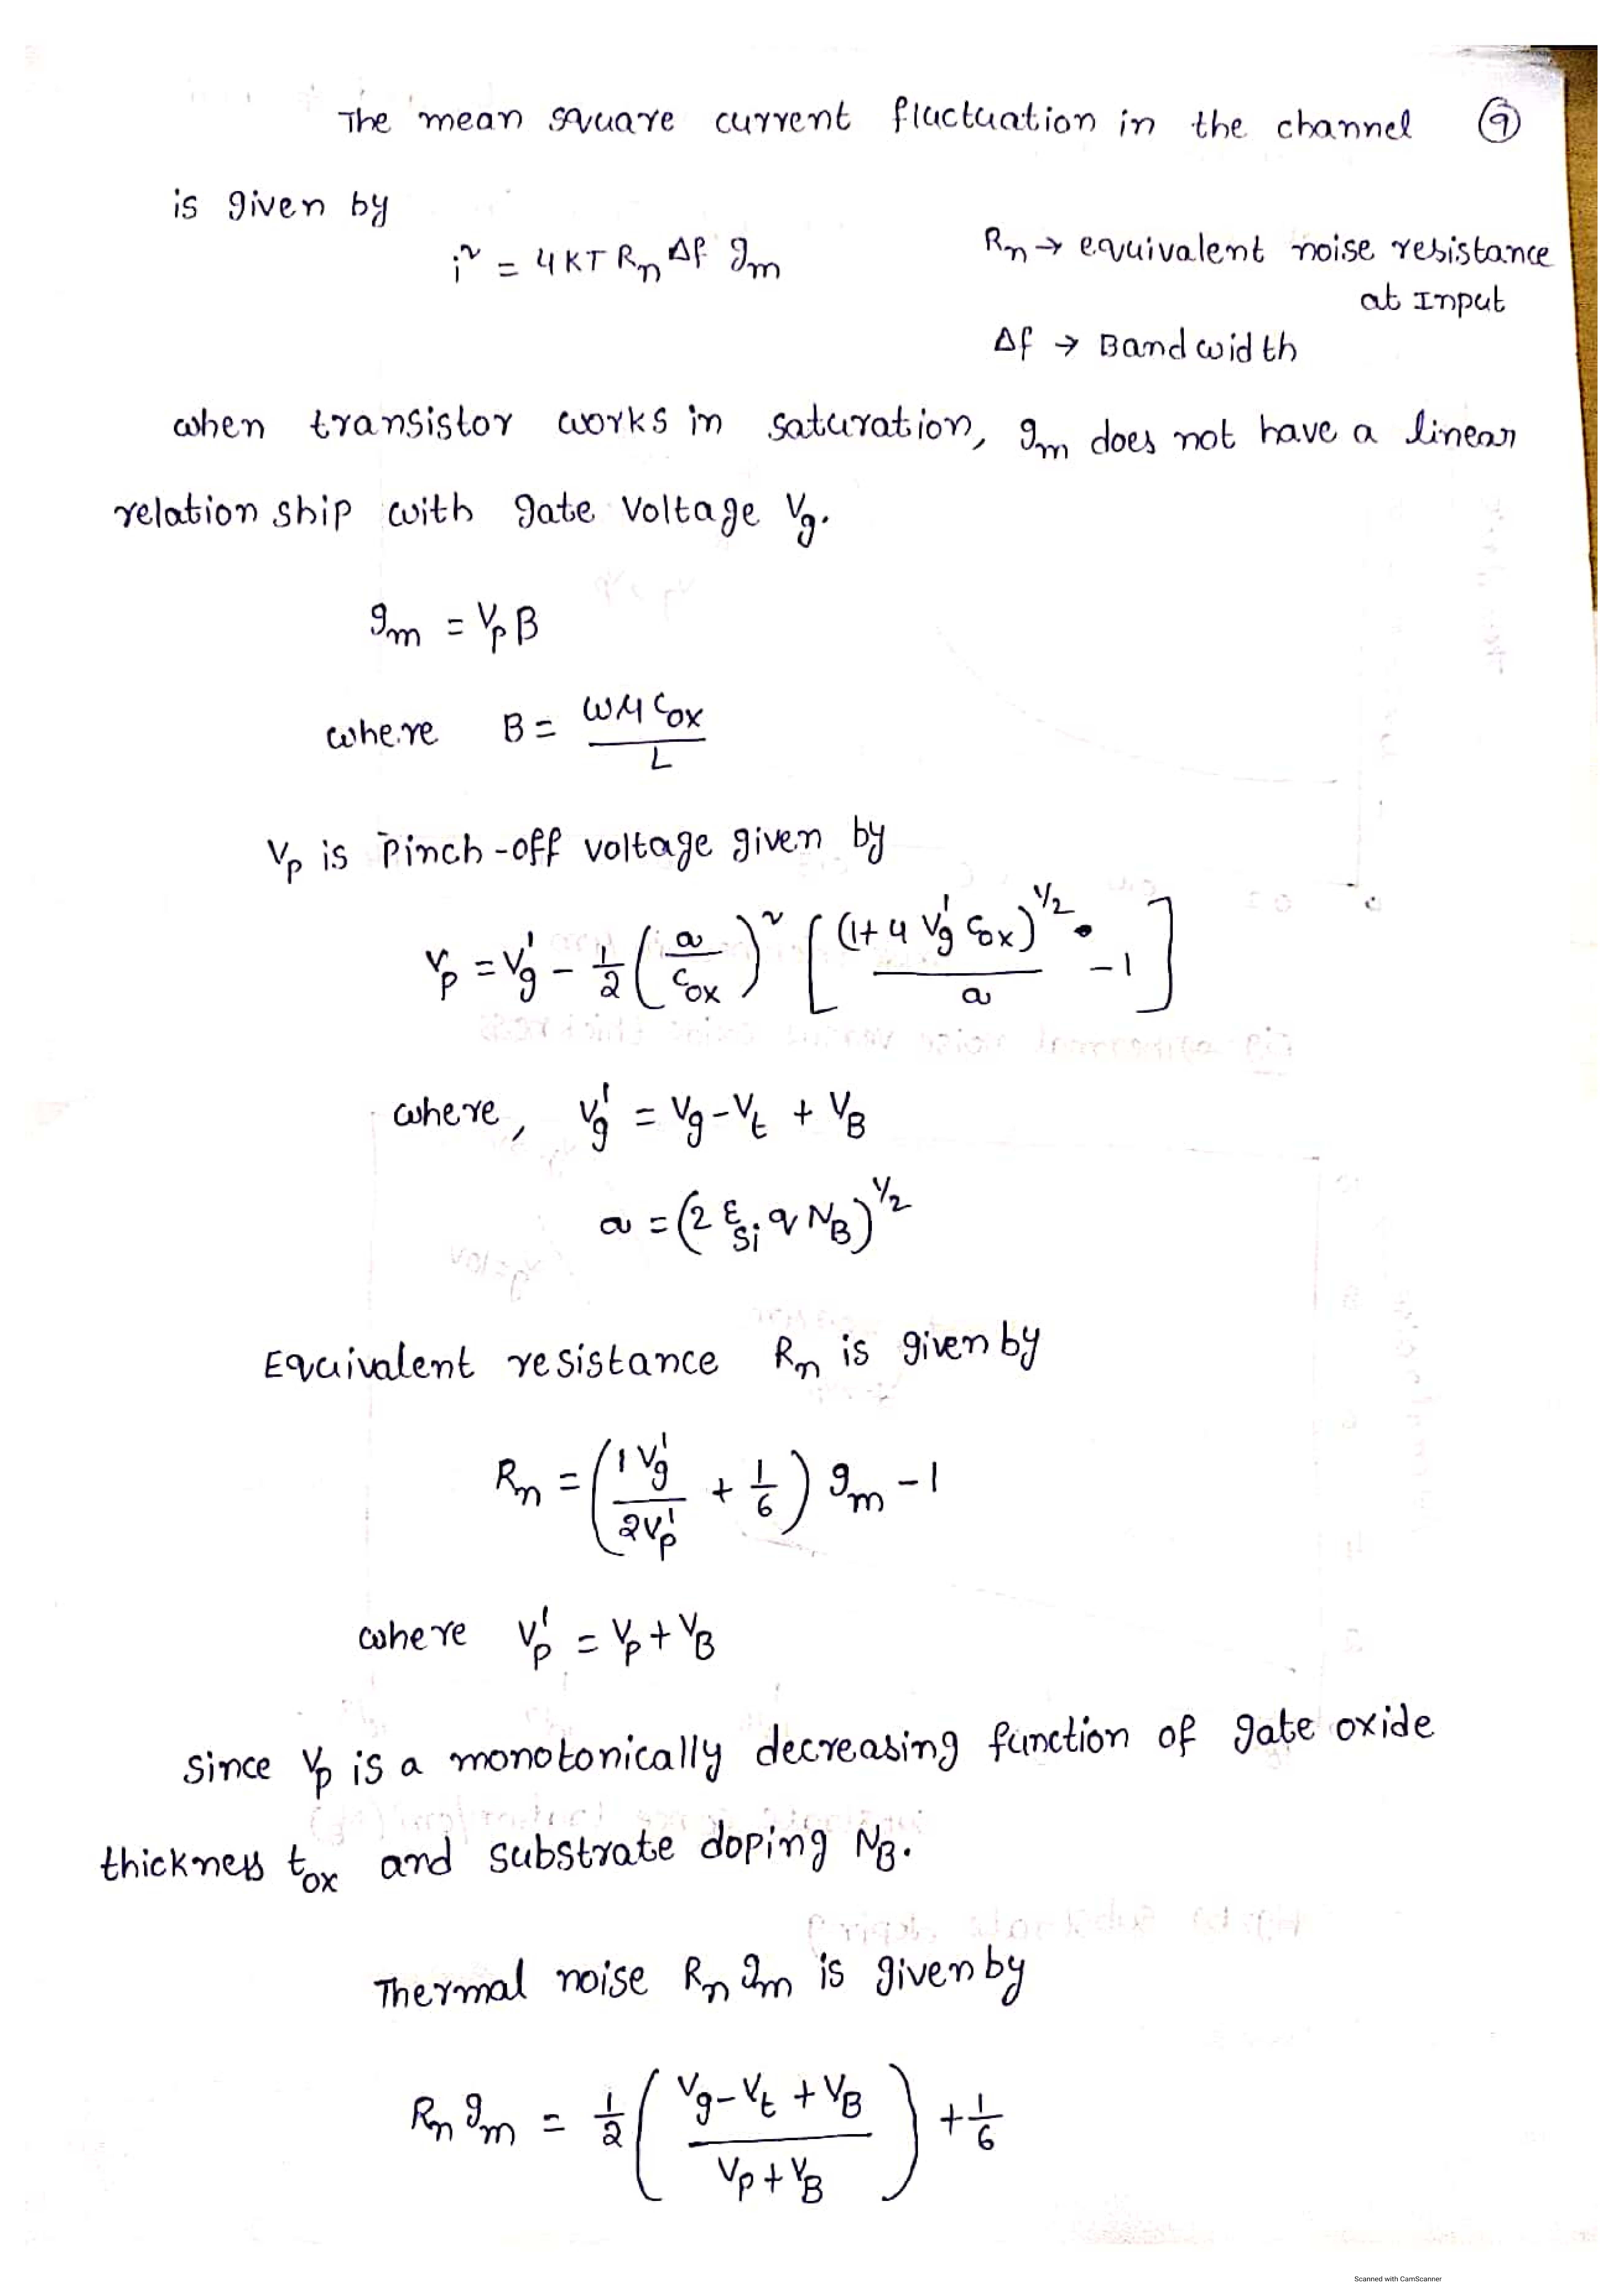 The mean square current fluctuation in the channel ⑨
is given by
i² = 4KT Rn Δf gm
Rn → equivalent noise resistance
at Input
Δf → Bandwidth
when transistor works in saturation, gm does not have a linear
relation ship with gate Voltage Vg.
gm = Vp B
where B = WμCox / L
Vp is Pinch-off voltage given by
Vp = Vg' - 1/2 (a/Cox)² [ (1+4 Vg' Cox)^1/2 / a - 1 ]
where, Vg' = Vg - Vt + VB
a = (2 εsi q NB)^1/2
Equivalent resistance Rn is given by
Rn = ( 1 Vg' / 2Vp' + 1/6 ) gm - 1
where Vp' = Vp + VB
Since Vp is a monotonically decreasing function of gate oxide
thickness tox and substrate doping NB.
Thermal noise Rn gm is given by
Rn gm = 1/2 ( Vg - Vt + VB / Vp + VB ) + 1/6
Scanned with CamScanner